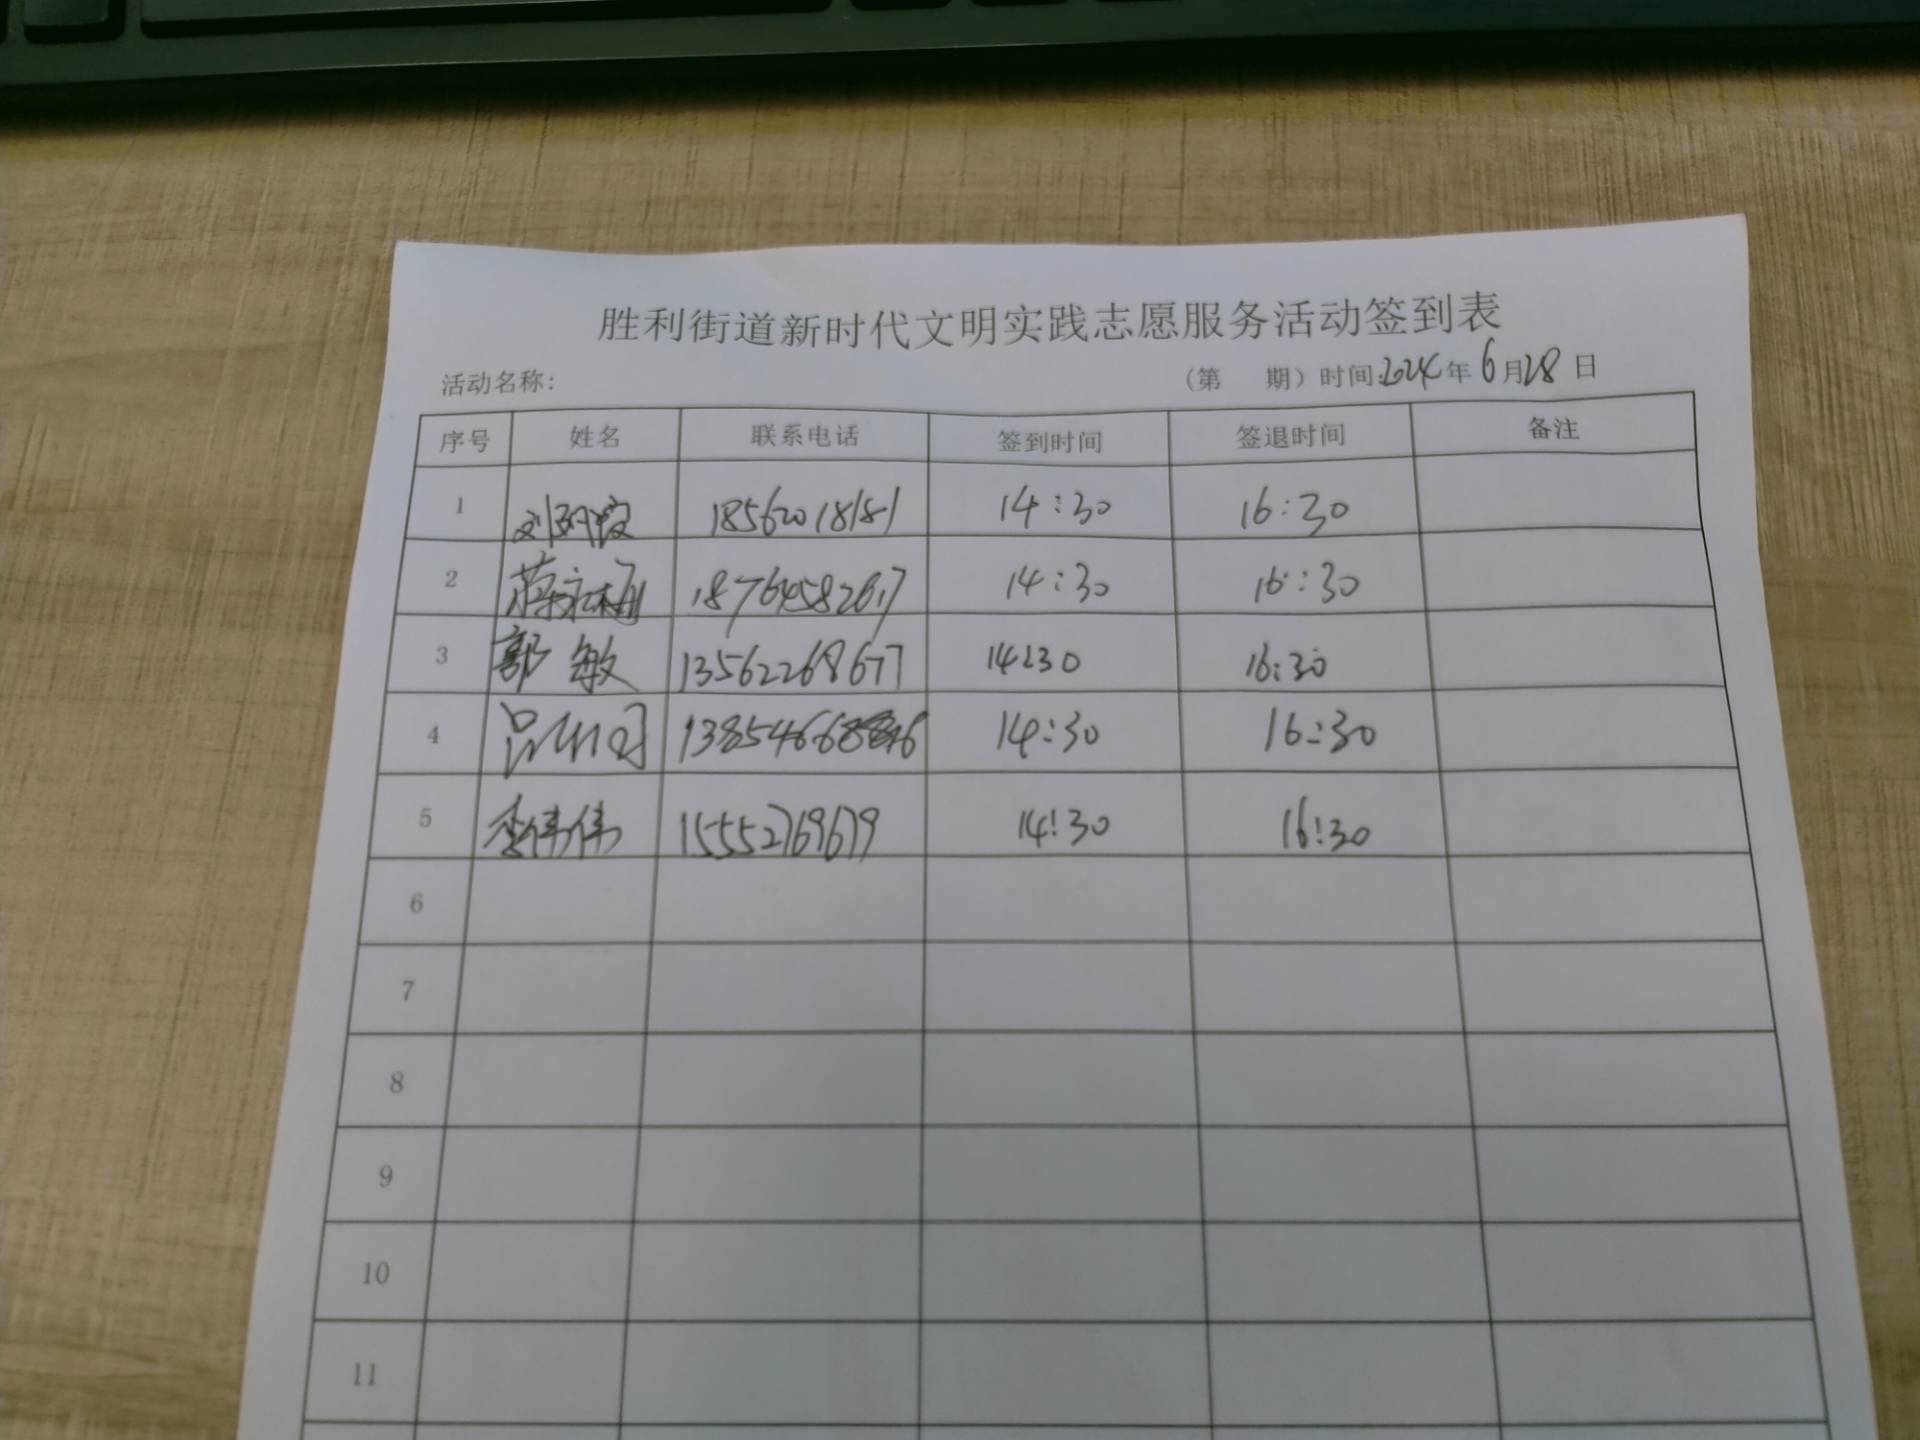 胜利街道新时代文明实践志愿服务活动签到表
活动名称: （第 期）时间:2024年6月28日
序号 姓名 联系电话 签到时间 签退时间 备注
1 18562018181 14:30 16:30
2 18764582617 14:30 16:30
3 郭敏 13562268677 14:30 16:30
4 14:30 16:30
5 李伟伟 15552769679 14:30 16:30
6
7
8
9
10
11